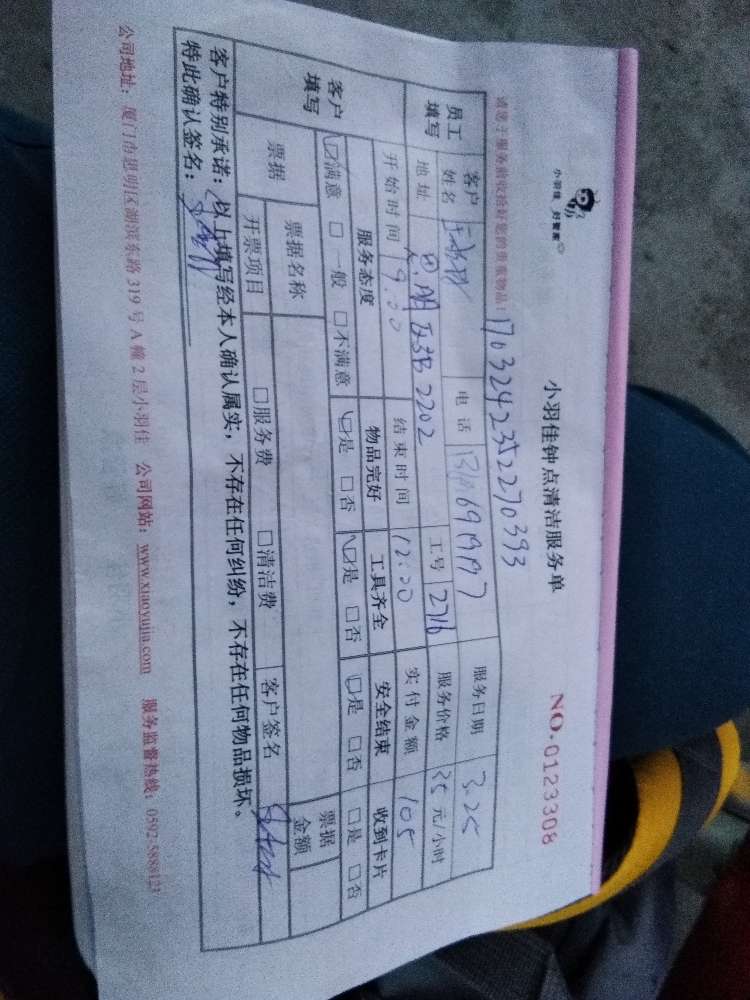 小羽佳 好管家
小羽佳钟点清洁服务单
NO.0123308
请您于服务前收捡好您的贵重物品！
1703242352270393
员工填写 客户姓名 电话 服务日期 3.25
地址 2202 工号 2716 服务价格 35 元/小时
开始时间 9:00 结束时间 12:00 实付金额 105
客户填写 服务态度 物品完好 工具齐全 安全结束 收到卡片
☑满意 □一般 □不满意 ☑是 □否 ☑是 □否 ☑是 □否 □是 □否
票据 票据名称 票据金额
开票项目 □服务费 □清洁费 客户签名
客户特别承诺：以上填写经本人确认属实，不存在任何纠纷，不存在任何物品损坏。
特此确认签名：
公司地址：厦门市思明区湖滨东路 319 号 A 幢 2 层小羽佳 公司网站：www.xiaoyujia.com 服务监督热线：0592 5888123